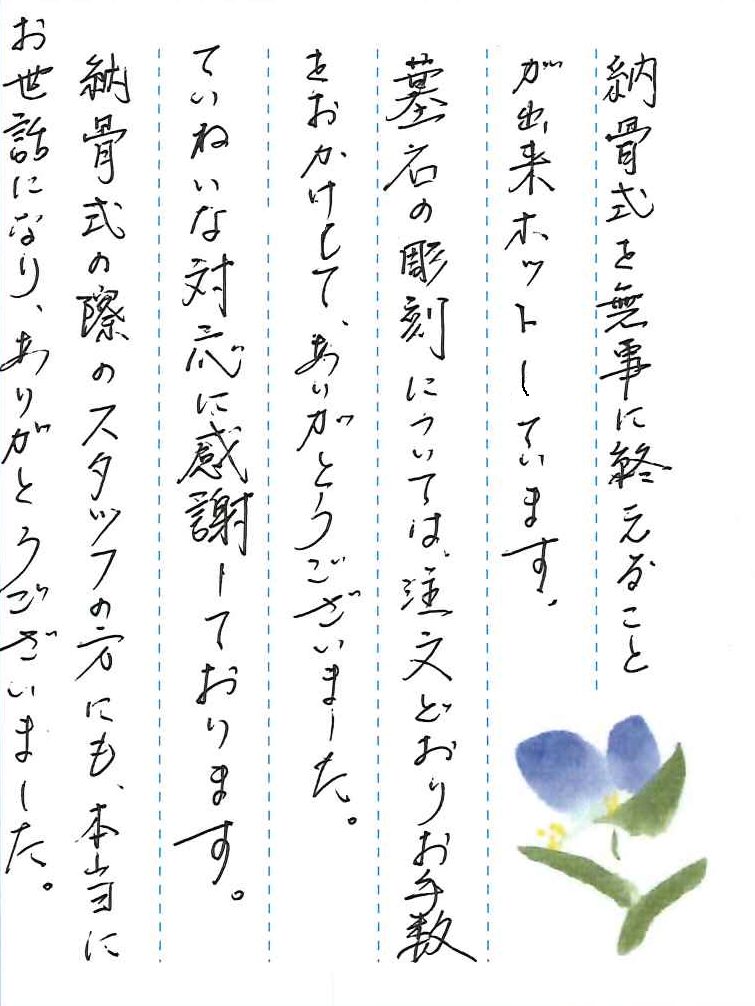 納骨式を無事に終えること
が出来ホットしています。
墓石の彫刻については、注文どおりお手数
をおかけして、ありがとうございました。
ていねいな対応に感謝しております。
納骨式の際のスタッフの方にも、本当に
お世話になり、ありがとうございました。